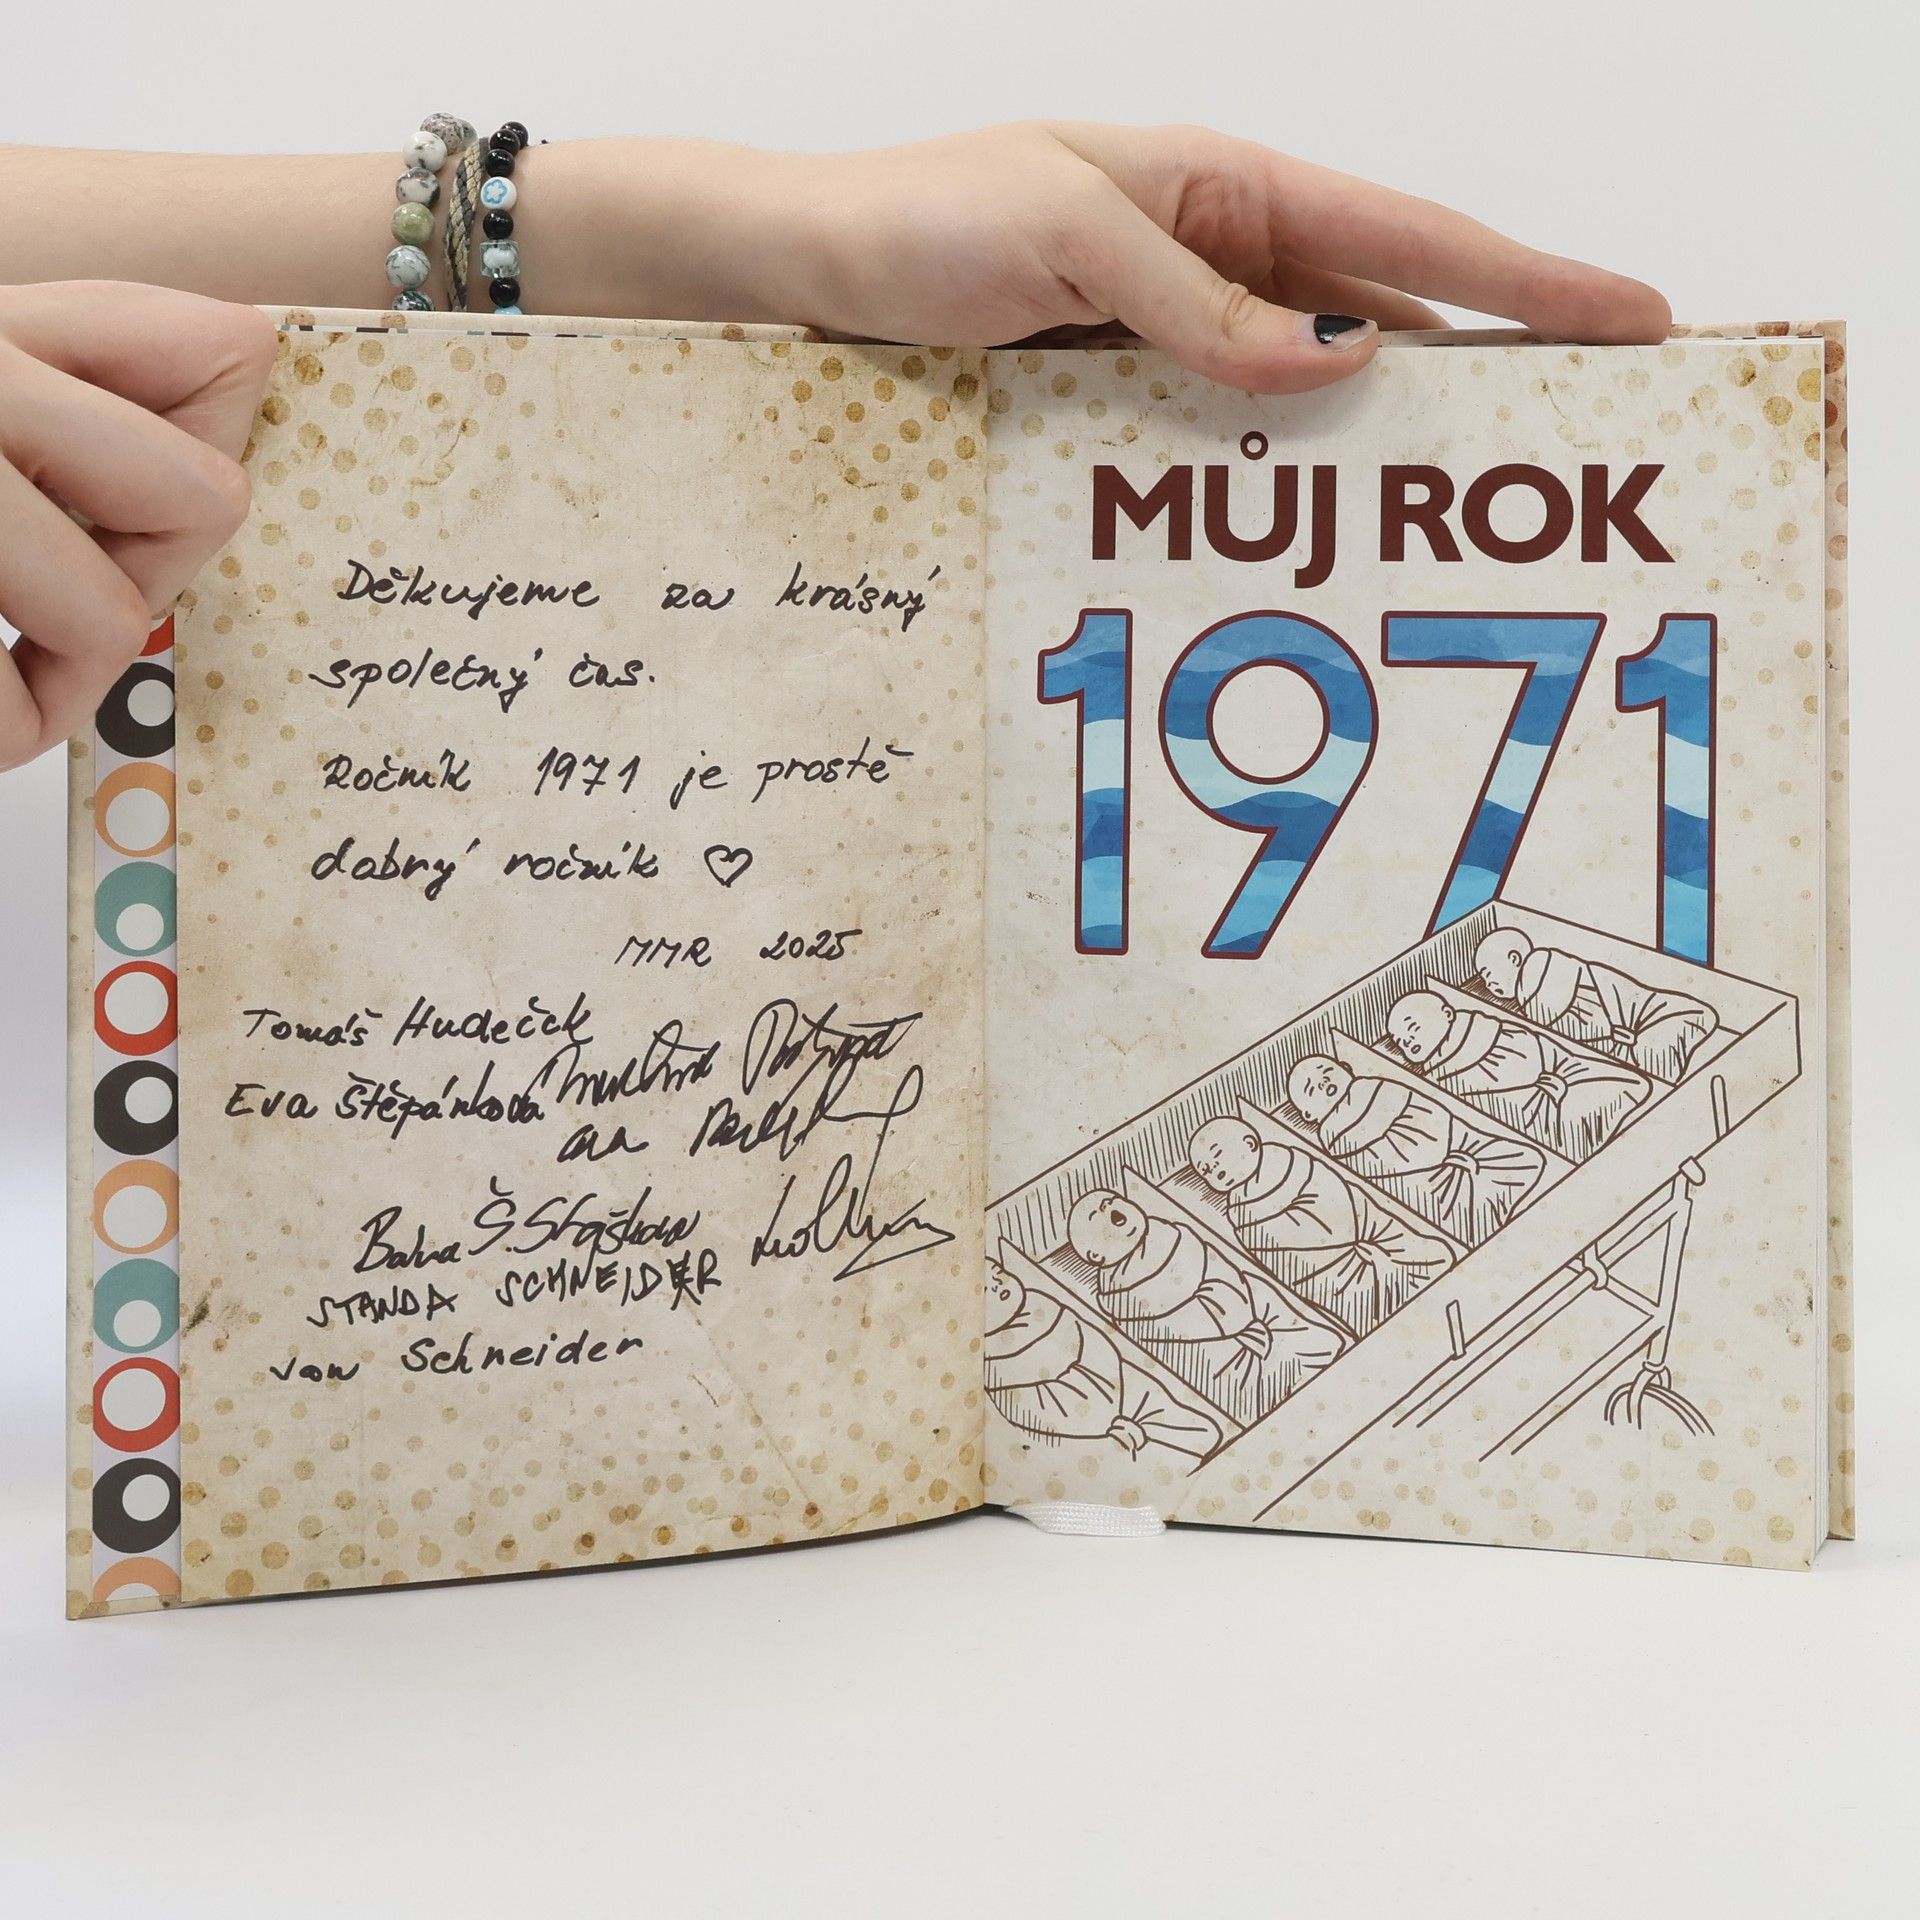 Děkujeme za krásný
společný čas.
Ročník 1971 je prostě
dobrý ročník ♡
MMR 2025
Tomáš Hudeček
Eva Štěpánková
STANDA SCHNEIDER
von Schneider
MŮJ ROK
1971